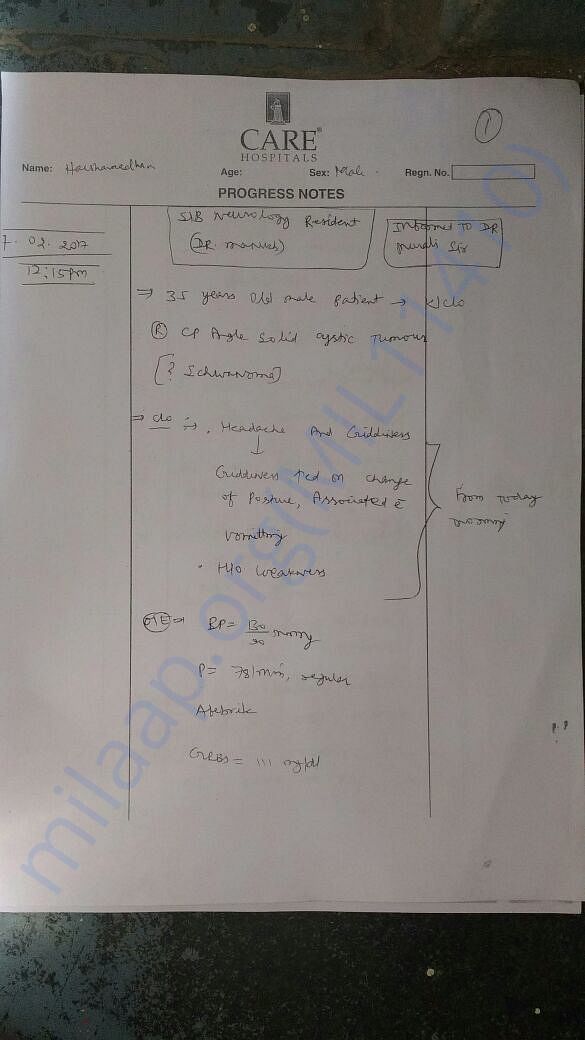 1
CARE
HOSPITALS
Name: Harshavardhan Age: Sex: Male Regn. No.
PROGRESS NOTES
7.02.2017
12:15pm
S/B Neurology Resident
(DR.
Informed to DR
Murali Sir
⇒ 35 years old male patient → K/c/o
Ⓡ CP Angle Solid cystic Tumour
[? Schwannoma]
⇒ C/o :→ . Headache And Giddiness
↓
Giddiness ↑ed on change
of Posture, Associated c̄
vomitting
• H/O weakness
From today
morning
O/E ⇒ BP = 130/90 mmHg
P = 78/min, regular
Afebrile
GRBS = 111 mg/dl
milaap.org(MIL11410)